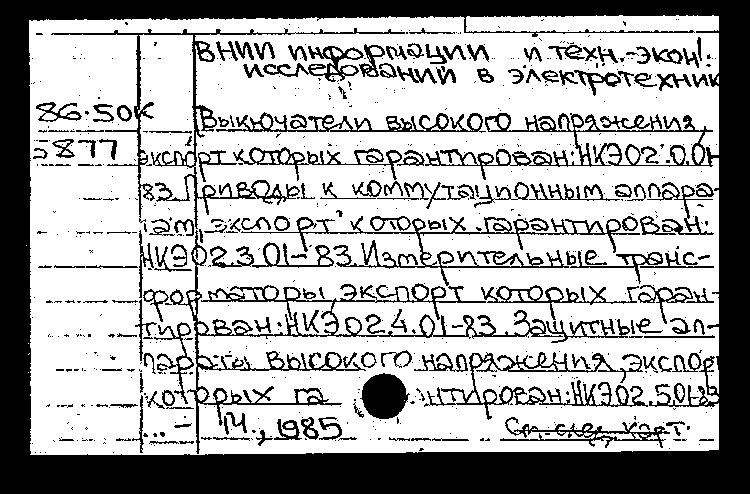 ВНИИ информации и техн.-экон.
исследований в электротехник
86.50К Выключатели высокого напряжения,
5877 экспорт которых гарантирован: НКЭ02.0.01-
83. Приводы к коммутационным аппара-
там, экспорт которых гарантирован:
НКЭ02.3.01-83. Измерительные транс-
форматоры, экспорт которых гаран-
тирован: НКЭ02.4.01-83. Защитные ап-
параты высокого напряжения, экспорт
которых га нтирован: НКЭ02.5.01-83
...- М., 1985 См. след. карт.